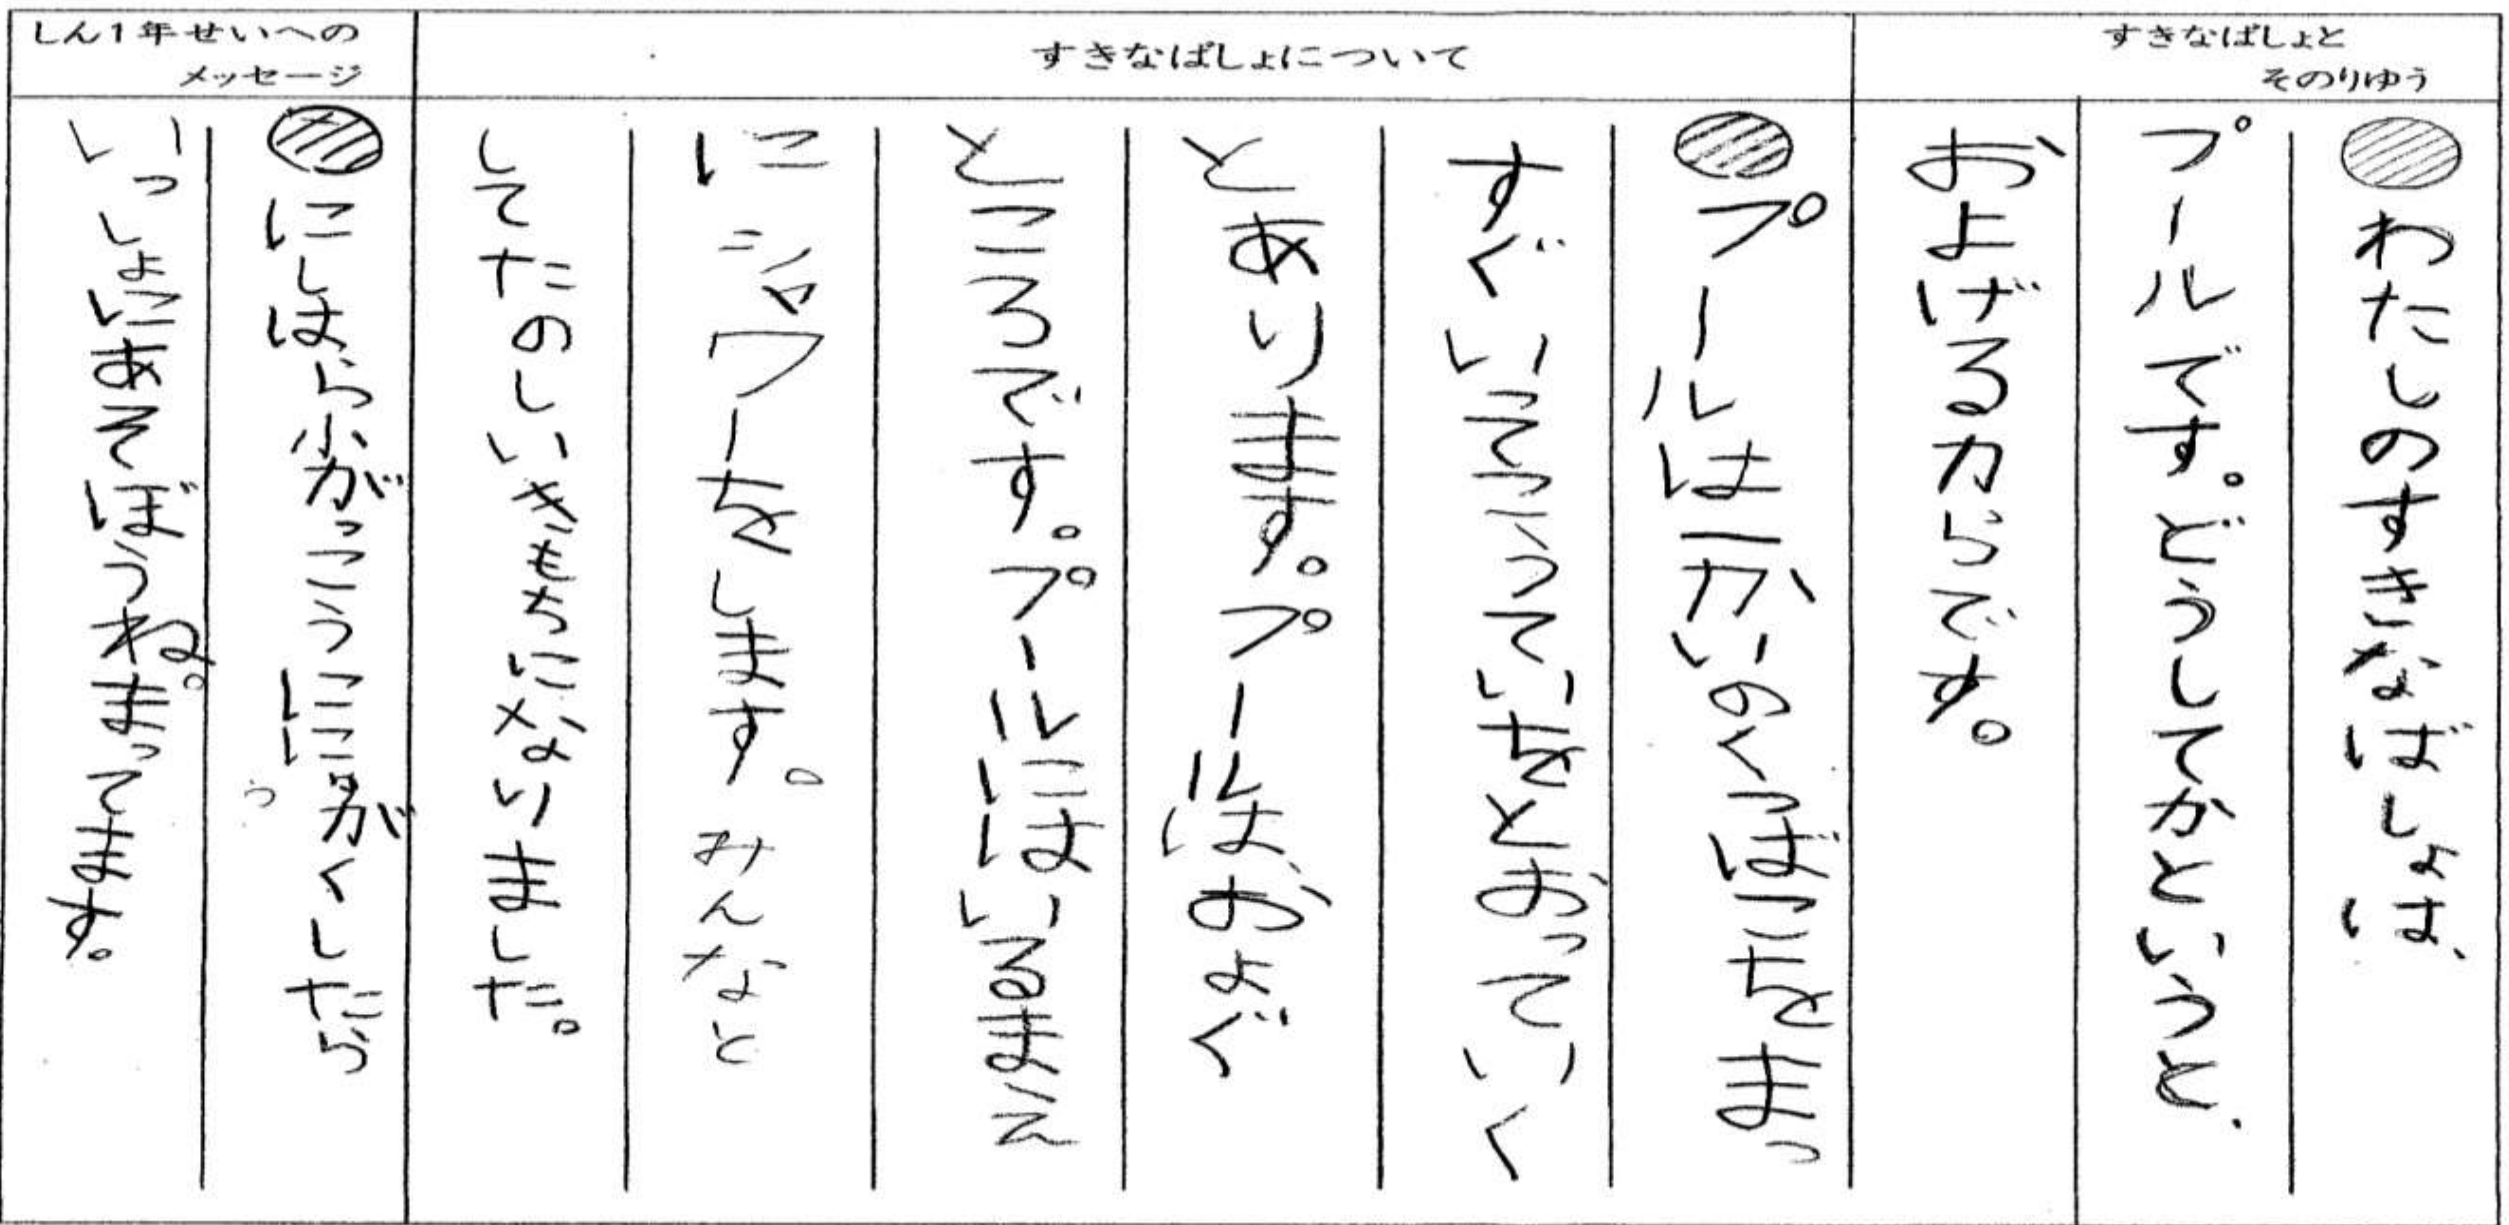 すきなばしょと
そのりゆう
わたしのすきなばしょは、
プールです。どうしてかというと、
およげるからです。
すきなばしょについて
プールは一かいのくつばこをまっ
すぐいってつこうっていをとおっていく
とあります。プールは、およぐ
ところです。プールにはいるまえ
にシャワーをします。みんなと
してたのしいきもちになりました。
しん1年せいへの
メッセージ
にしはら小がっこうににゅうがくしたら
いっしょにあそぼうね。まってます。